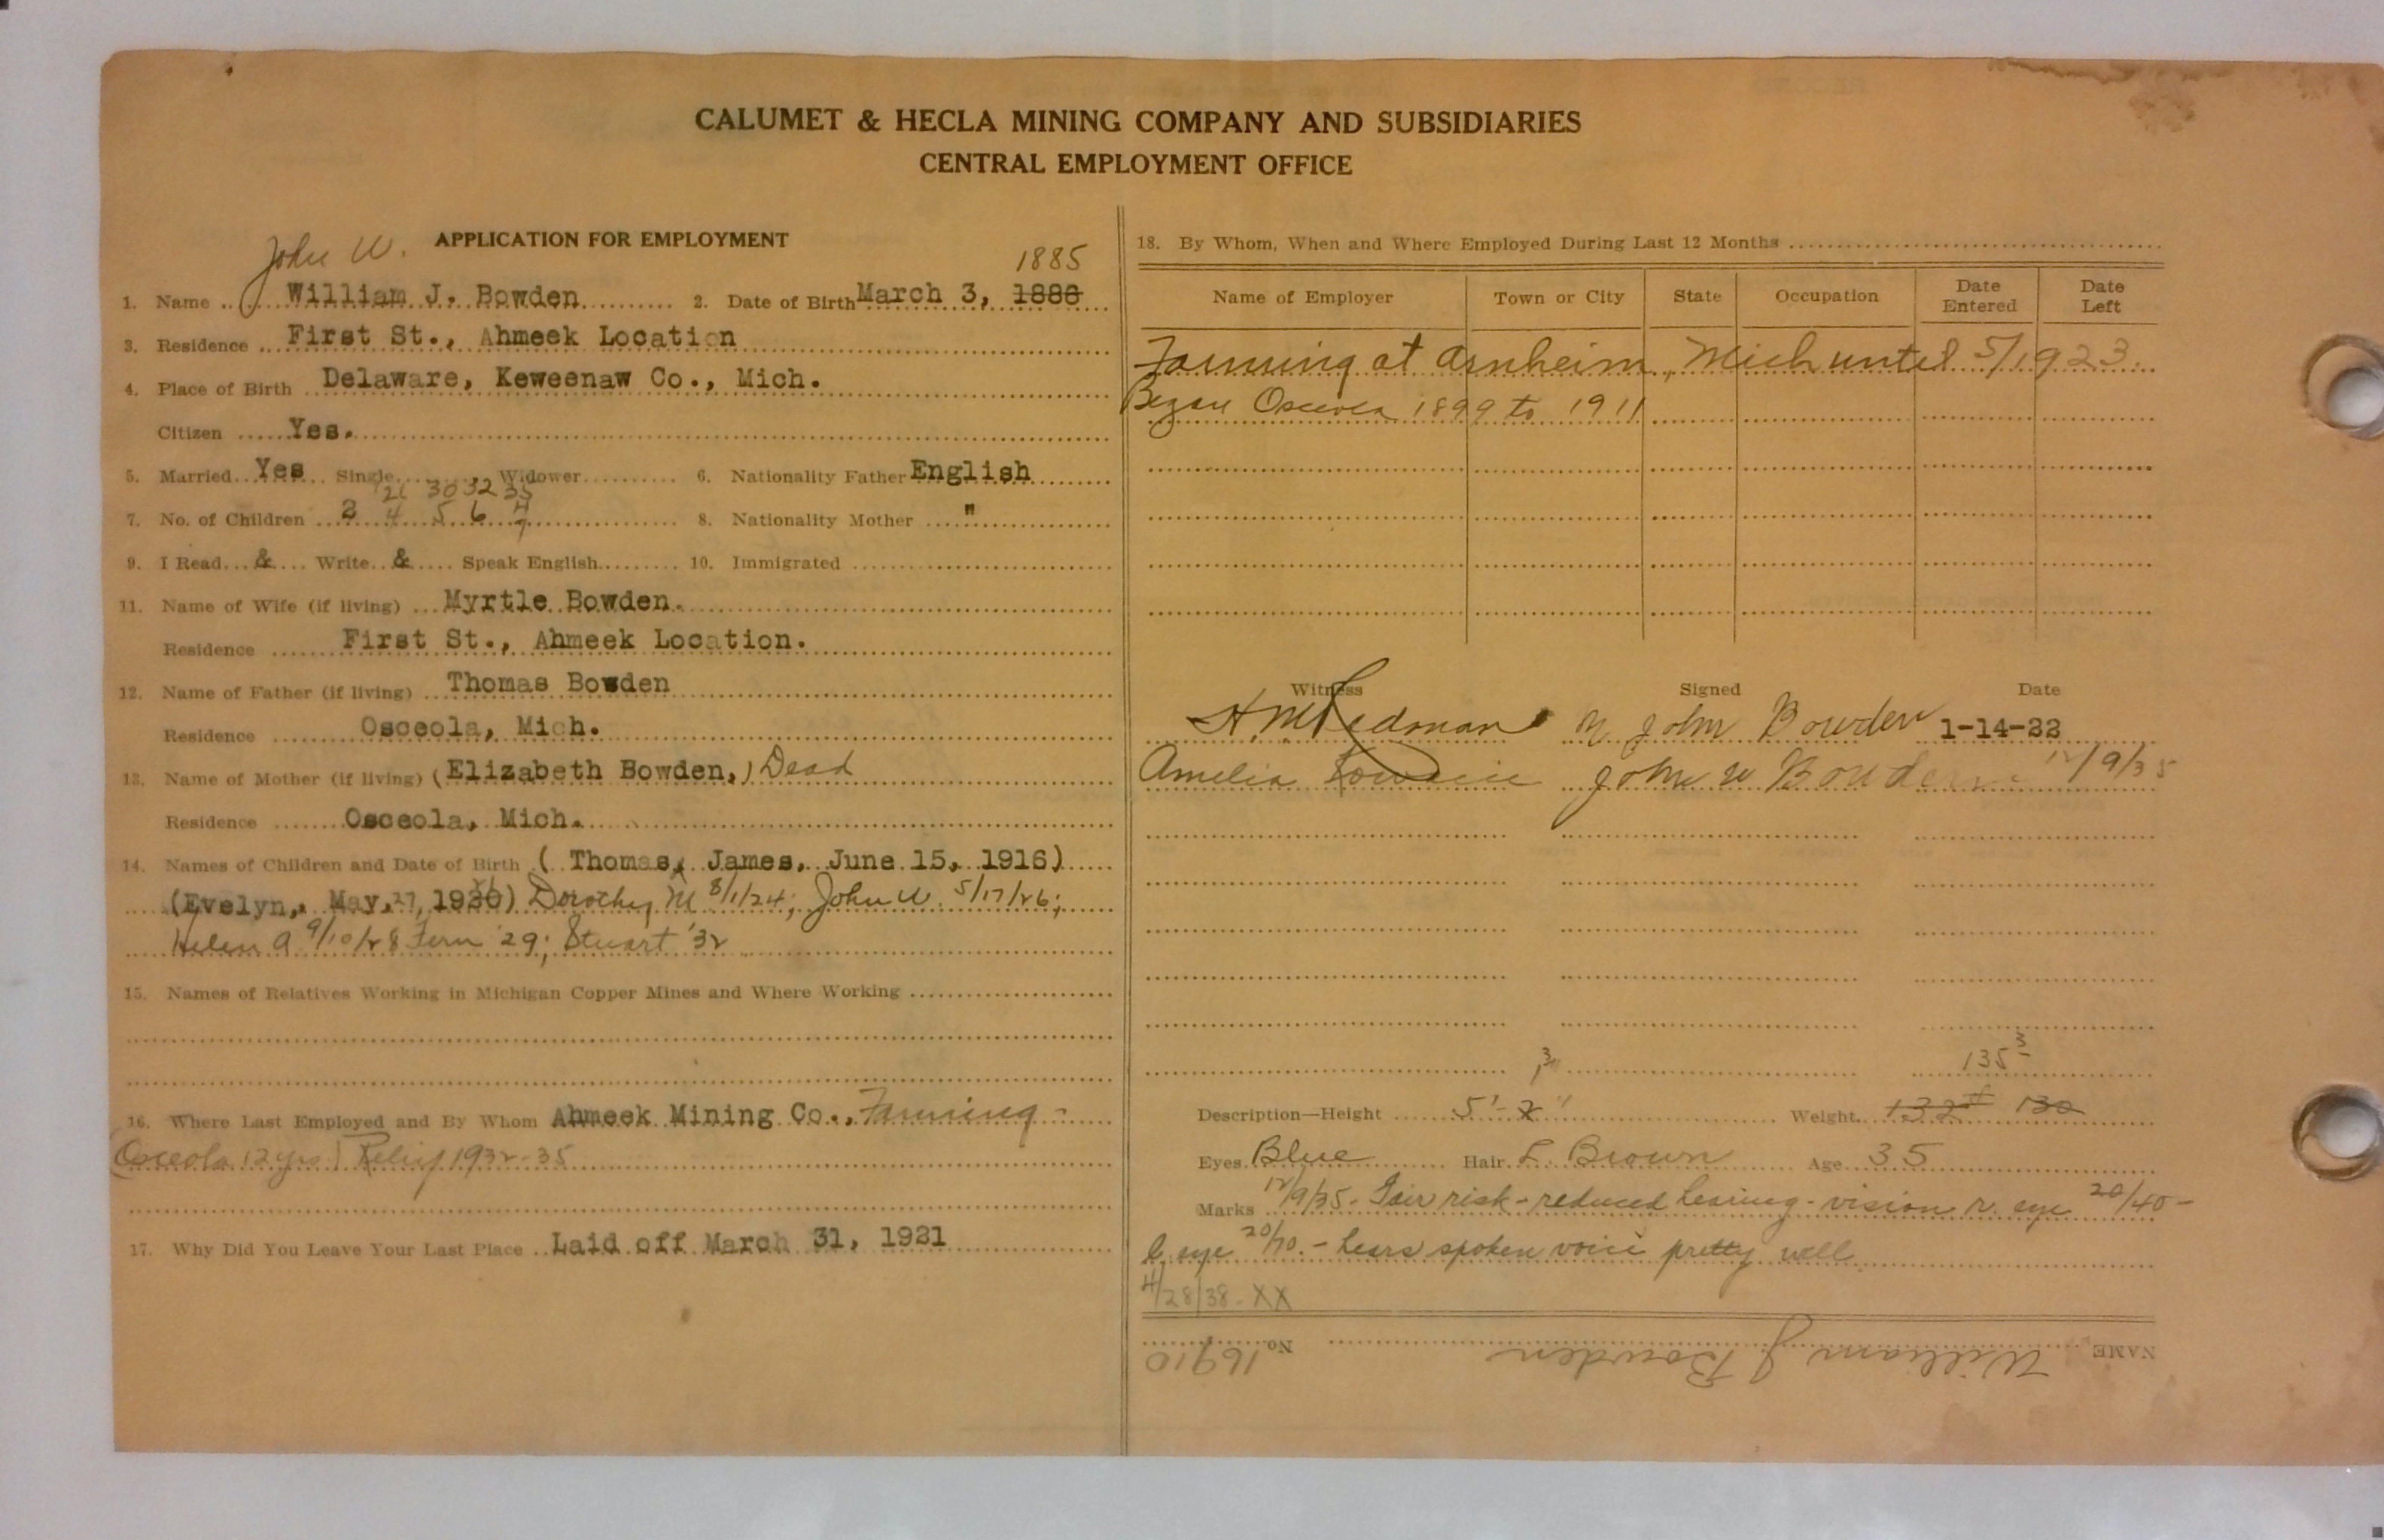 CALUMET & HECLA MINING COMPANY AND SUBSIDIARIES
CENTRAL EMPLOYMENT OFFICE
APPLICATION FOR EMPLOYMENT
John W.
1885
1. Name William J. Bowden 2. Date of Birth March 3, 1886
3. Residence First St., Ahmeek Location
4. Place of Birth Delaware, Keweenaw Co., Mich.
Citizen Yes.
5. Married Yes Single Widower 6. Nationality Father English
30 32 35
7. No. of Children 2 4 5 6 7 8. Nationality Mother "
9. I Read & Write & Speak English 10. Immigrated
11. Name of Wife (if living) Myrtle Bowden.
Residence First St., Ahmeek Location.
12. Name of Father (if living) Thomas Bowden
Residence Osceola, Mich.
13. Name of Mother (if living) (Elizabeth Bowden,) Dead
Residence Osceola, Mich.
14. Names of Children and Date of Birth ( Thomas, James, June 15, 1916)
(Evelyn, May, 27, 1920) Dorothy M 8/1/24; John W. 5/17/26;
Helen A 9/10/28 Fern '29; Stuart '32
15. Names of Relatives Working in Michigan Copper Mines and Where Working
16. Where Last Employed and By Whom Ahmeek Mining Co., Farming -
(Osceola 12 yrs.) Relief 1932-35
17. Why Did You Leave Your Last Place Laid off March 31, 1921
18. By Whom, When and Where Employed During Last 12 Months
Name of Employer Town or City State Occupation Date Entered Date Left
Farming at Arnheim, Mich until 5/1923.
Began Osceola 1899 to 1911
Witness Signed Date
H. M. Redman John Bowden 1-14-22
Amelia John W Bowden 12/9/35
3" 135 3
Description—Height 5'-2" Weight 132# 130
Eyes Blue Hair L. Brown Age 35
Marks 12/9/35 - Fair risk - reduced hearing - vision r. eye 20/40 -
l. eye 20/70. - hears spoken voice pretty well
4/28/38 - XX
NAME William J Bowden No. 16910